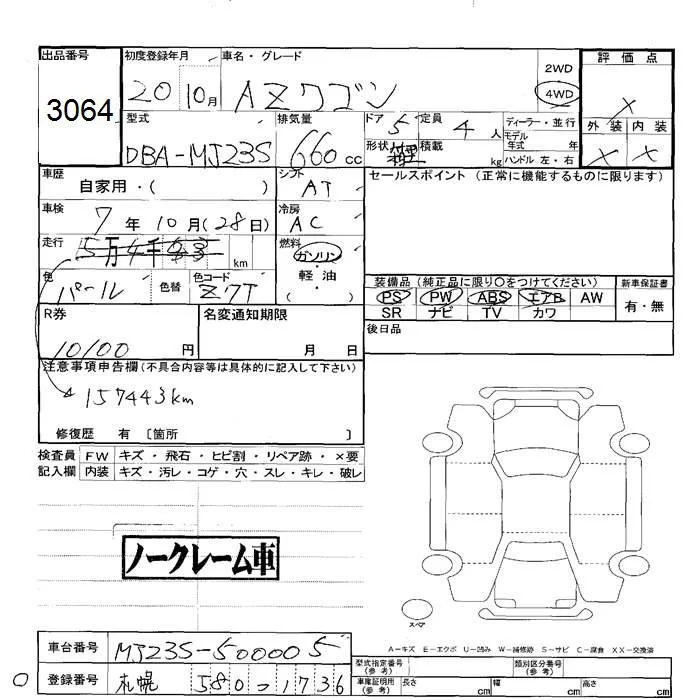 出品番号
3064
初度登録年月
20 10月
車名・グレード
AZワゴン
2WD
4WD
評価点
×
外装 内装
× ×
型式
DBA-MJ23S
排気量
660 cc
ドア 5
定員 4 人
形状
積載 kg
ディーラー・並行
モデル年式 年
ハンドル 左・右
車歴
自家用・( )
シフト
AT
セールスポイント (正常に機能するものに限ります)
車検
7年10月(28日)
冷房
AC
走行
km
燃料
ガソリン
軽・油
( )
色
パール
色替
色コード
Z7T
装備品 (純正品に限り〇をつけてください)
PS PW ABS エアB AW
SR ナビ TV カワ
新車保証書
有・無
R券
10100 円
名変通知期限
月 日
後日品
注意事項申告欄(不具合内容等は具体的に記入して下さい)
157443km
修復歴 有 〔箇所 〕
検査員記入欄
FW キズ・飛石・ヒビ割・リペア跡・×要
内装 キズ・汚レ・コゲ・穴・スレ・キレ・破レ
ノークレーム車
スペア
A-キズ E-エクボ U-凹み W-補修跡 S-サビ C-腐食 XX-交換済
車台番号
MJ23S-500005
登録番号
札幌 580-1736
型式指定番号(参考)
類別区分番号(参考)
車庫証明用(参考)
長さ cm
幅 cm
高さ cm